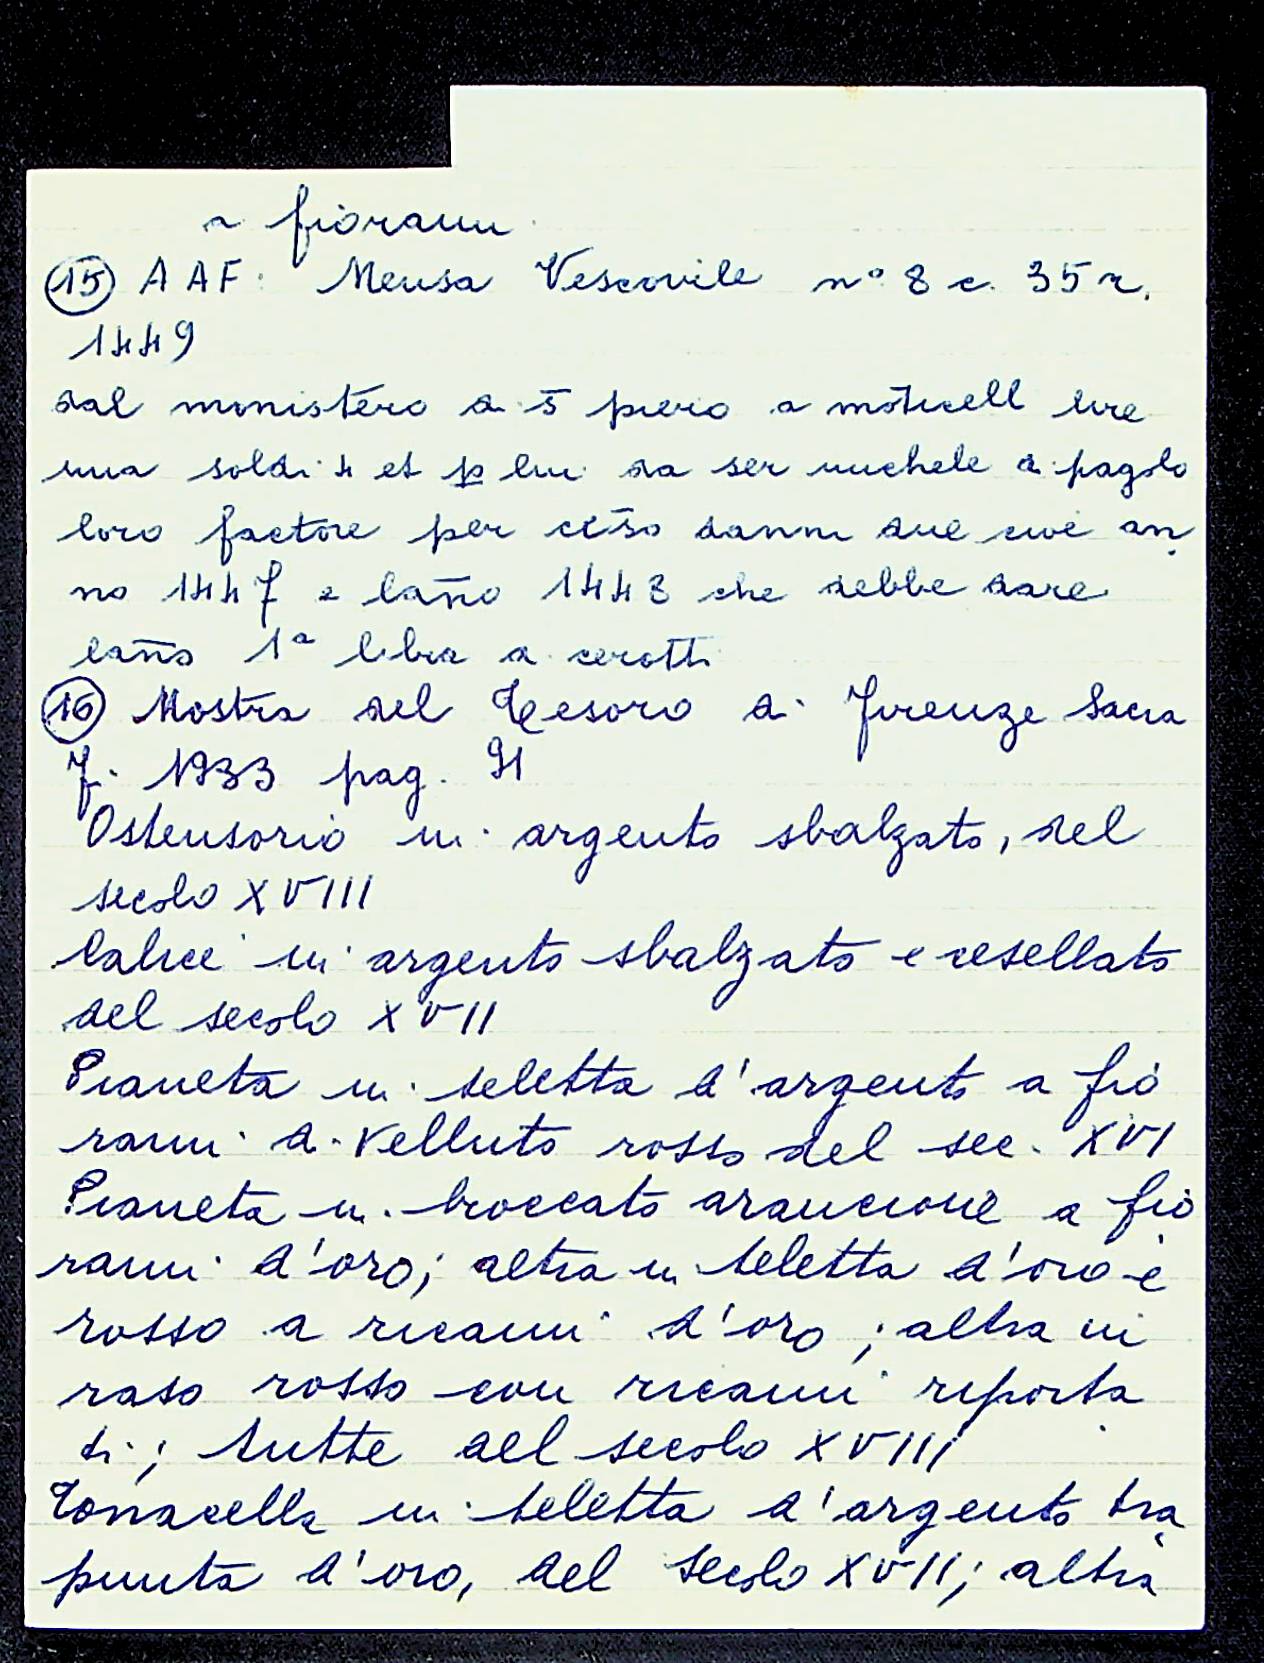 a fiorami
15 AAF: Mensa Vescovile n° 8 c. 35 r.
1449
dal monistero di s̄ piero a mōticelli lire
una soldi 4 et p lui da ser michele di pagolo
loro factore per cēso danni due cioè an
no 1447 e lan̄o 1448 che debbe dare
lan̄o 1ª libra di cerotti
16 Mostra del Tesoro di Firenze Sacra
F. 1933 pag. 91
Ostensorio in argento sbalzato, del
secolo XVIII
Calice in argento sbalzato e cesellato
del secolo XVII
Pianeta in teletta d'argento a fio
rami di velluto rosso del sec. XVI
Pianeta in broccato arancione a fio
rami d'oro; altra in teletta d'oro e
rosso a ricami d'oro; altra in
raso rosso con ricami riporta
ti; tutte del secolo XVIII
Tonacella in teletta d'argento tra
punta d'oro, del secolo XVII; altra